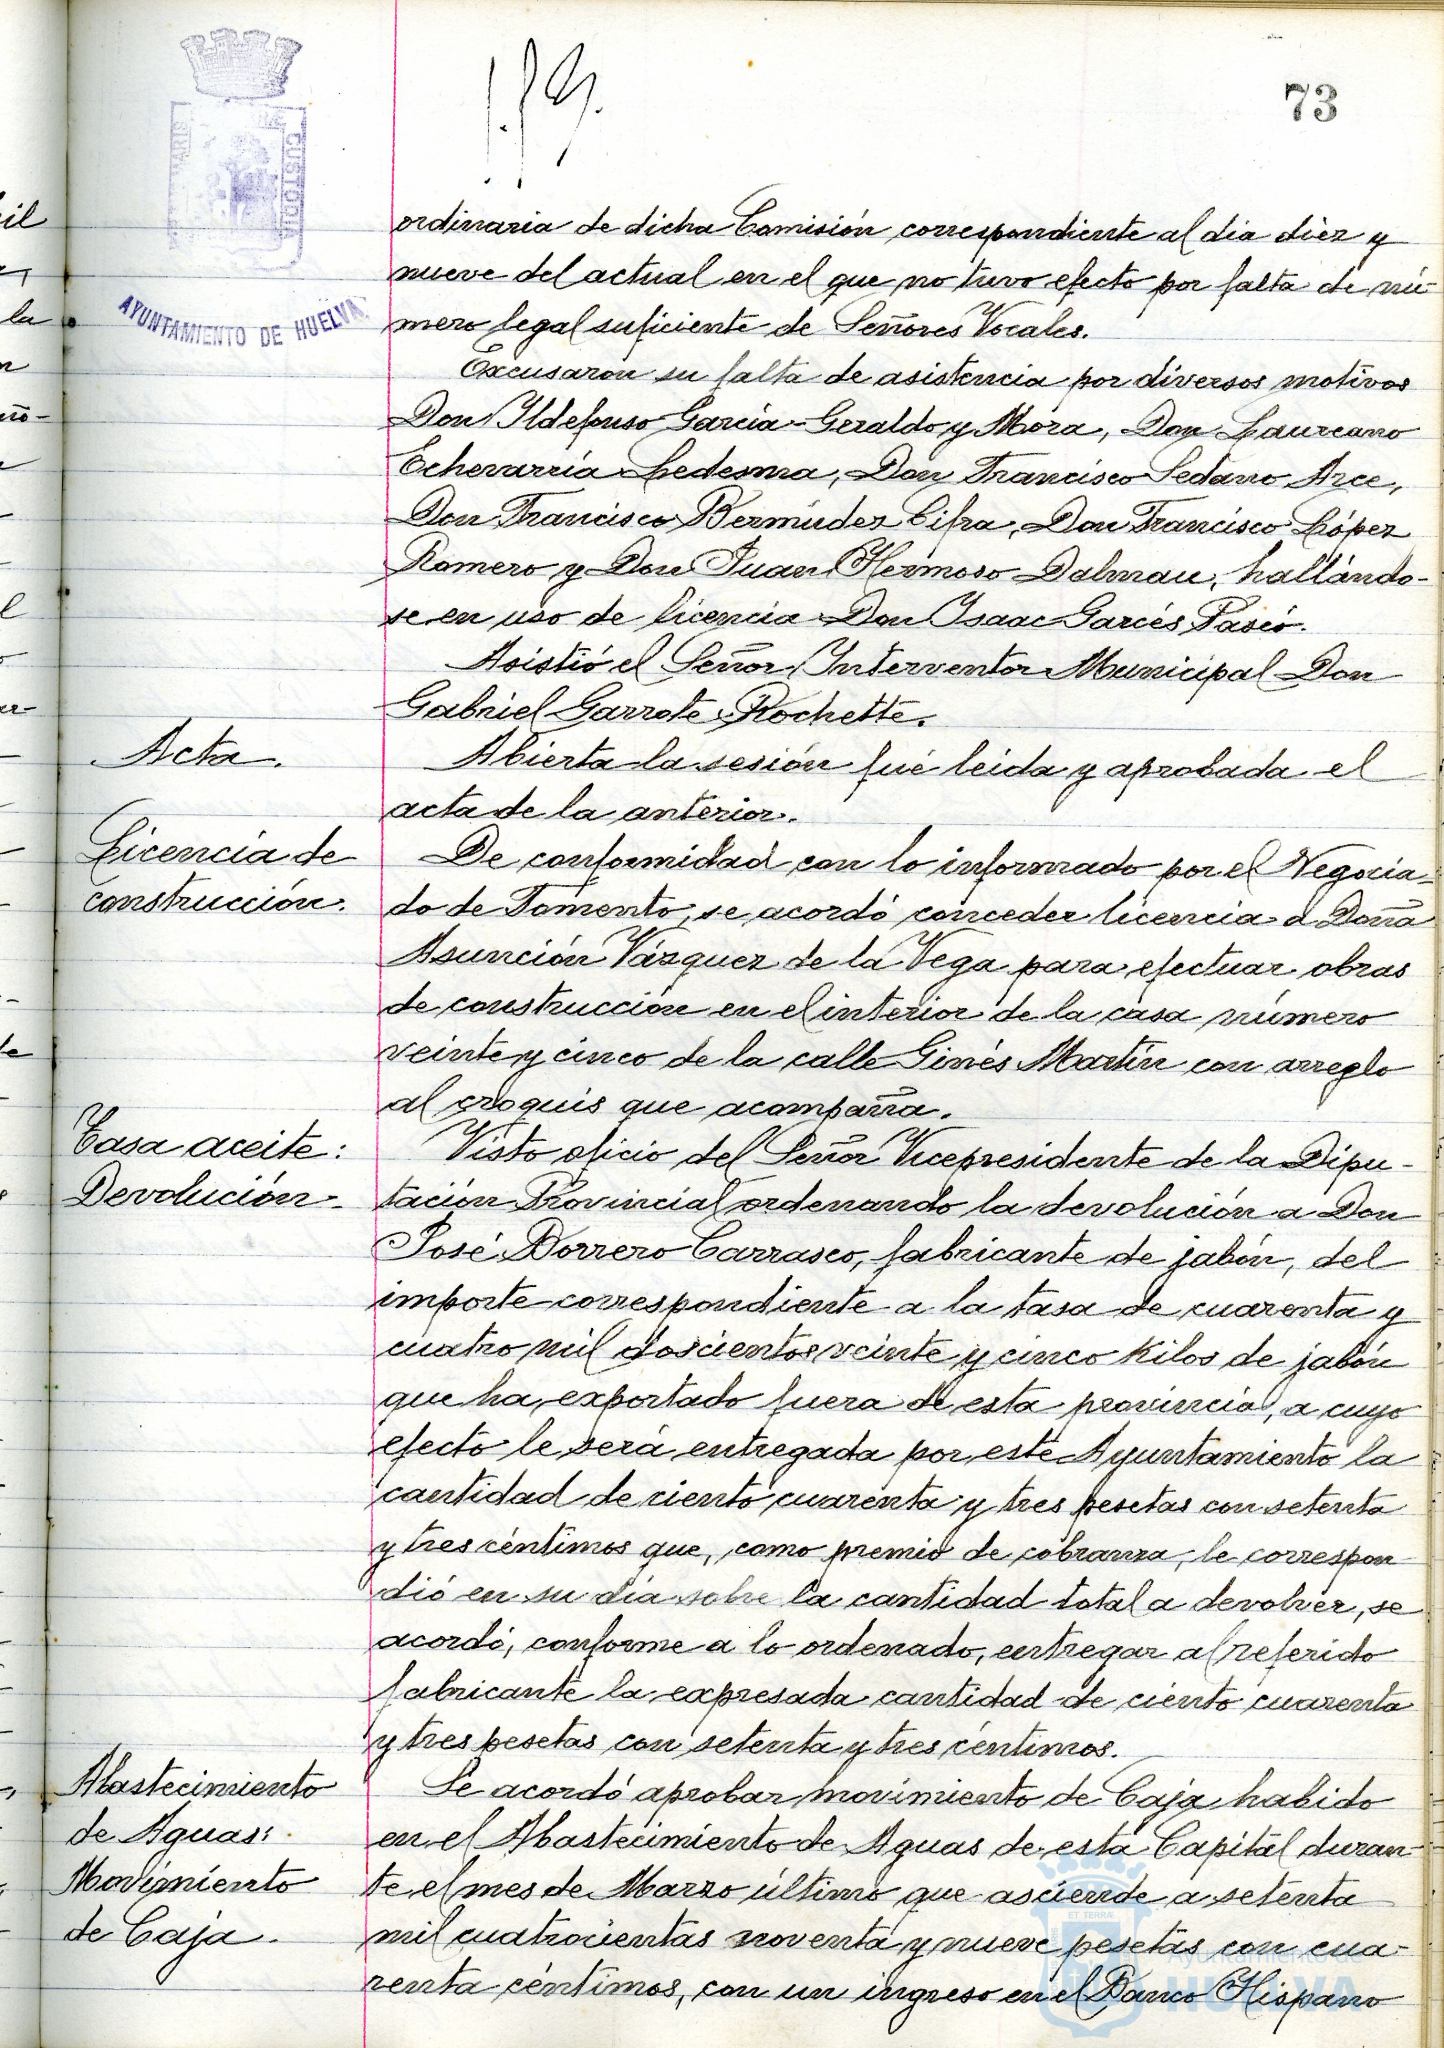 73
AYUNTAMIENTO DE HUELVA
CUSTODIA
MARIS
ordinaria de dicha Comisión correspondiente al dia diez y
nueve del actual en el que no tuvo efecto por falta de nú-
mero legal suficiente de Señores Vocales.
Excusaron su falta de asistencia por diversos motivos
Don Ildefonso García-Geraldo y Mora, Don Laureano
Echevarría Ledesma, Don Francisco Sedano Arce,
Don Francisco Bermúdez Cifra, Don Francisco López
Romero y Don Juan Hermoso Dalmau, hallándo-
se en uso de licencia Don Isaac Garcés Pasió.
Asistió el Señor Interventor Municipal Don
Gabriel Garrote Rochette.
Acta.
Abierta la sesión fué leida y aprobada el
acta de la anterior.
Licencia de
construcción.
De conformidad con lo informado por el Negocia-
do de Fomento, se acordó conceder licencia a Doña
Asunción Vázquez de la Vega para efectuar obras
de construcción en el interior de la casa número
veinte y cinco de la calle Ginés Martín con arreglo
al croquis que acompaña.
Tasa aceite:
Devolución.
Visto oficio del Señor Vicepresidente de la Dipu-
tación Provincial ordenando la devolución a Don
José Borrero Carrasco, fabricante de jabón, del
importe correspondiente a la tasa de cuarenta y
cuatro mil doscientos veinte y cinco kilos de jabón
que ha exportado fuera de esta provincia, a cuyo
efecto le será entregada por este Ayuntamiento la
cantidad de ciento cuarenta y tres pesetas con setenta
y tres céntimos que, como premio de cobranza, le correspon
dió en su dia sobre la cantidad total a devolver, se
acordó, conforme a lo ordenado, entregar al referido
fabricante la expresada cantidad de ciento cuarenta
y tres pesetas con setenta y tres céntimos.
Abastecimiento
de Aguas:
Movimiento
de Caja.
Se acordó aprobar movimiento de Caja habido
en el Abastecimiento de Aguas de esta Capital duran-
te el mes de Marzo último que asciende a setenta
mil cuatrocientas noventa y nueve pesetas con cua-
renta céntimos, con un ingreso en el Banco Hispano
ET TERRA
Ayuntamiento de
HUELVA